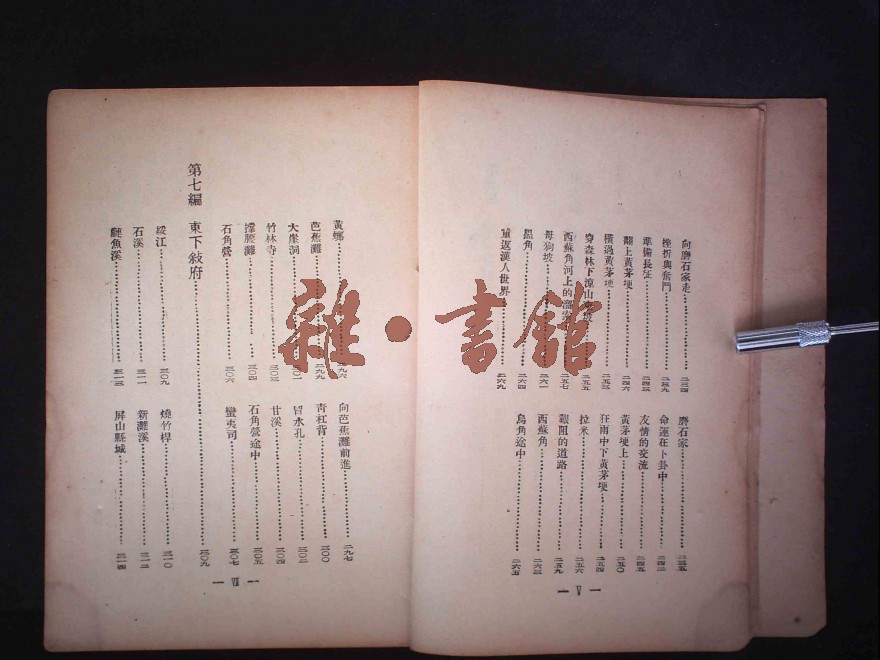 向磨石家走……二三四
磨石家……二三五
挫折與奮鬥……二三九
命運在卜卦中……二四二
準備長征……二四三
友情的交流……二四五
翻上黃茅埂……二四六
黃茅埂上……二五〇
橫過黃茅埂……二五三
狂雨中下黃茅埂……二五四
穿森林下涼山東坡……二五五
拉米……二五六
西蘇角河上的溜索……二五七
艱阻的道路……二五九
母狗坡……二六一
西蘇角……二六三
烏角……二六四
烏角途中……二六五
重返漢人世界……二六九
— V —
黃螂……二九六
向芭蕉灘前進……二九七
芭蕉灘……二九九
青杠背……三〇〇
大崖洞……三〇一
冒水孔……三〇二
竹林寺……三〇三
甘溪……三〇四
撐腰灘……三〇四
石角營途中……三〇五
石角營……三〇六
蠻夷司……三〇七
第七編 東下敍府……三〇九
綏江……三〇九
燒竹桿……三一〇
石溪……三一一
新灘溪……三一二
鰱魚溪……三一三
屏山縣城……三一四
— VI —
雜·書館